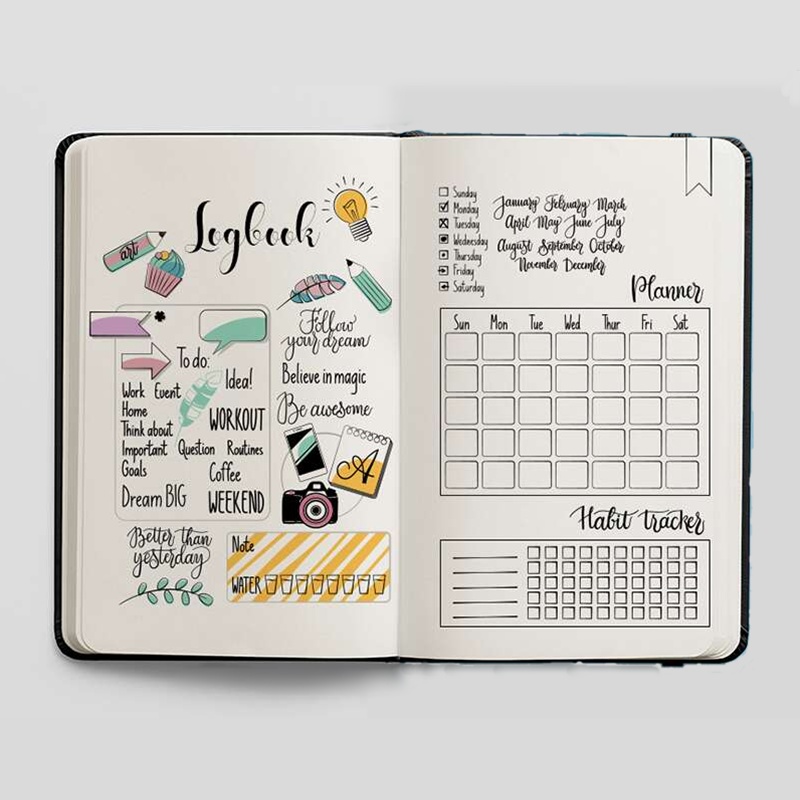 Logbook
art
To do:
Idea!
Work Event
Home
WORKOUT
Think about
Important Question Routines
Goals
Coffee
Dream BIG
WEEKEND
Follow
your dream
Believe in magic
Be awesome
A
Better than
yesterday
Note
WATER
Sunday
Monday
Tuesday
Wednesday
Thursday
Friday
Saturday
January February March
April May June July
August September October
November December
Planner
Sun Mon Tue Wed Thur Fri Sat
Habit tracker